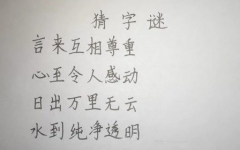 猜字谜
言来互相尊重
心至令人感动
日出万里无云
水到纯净透明